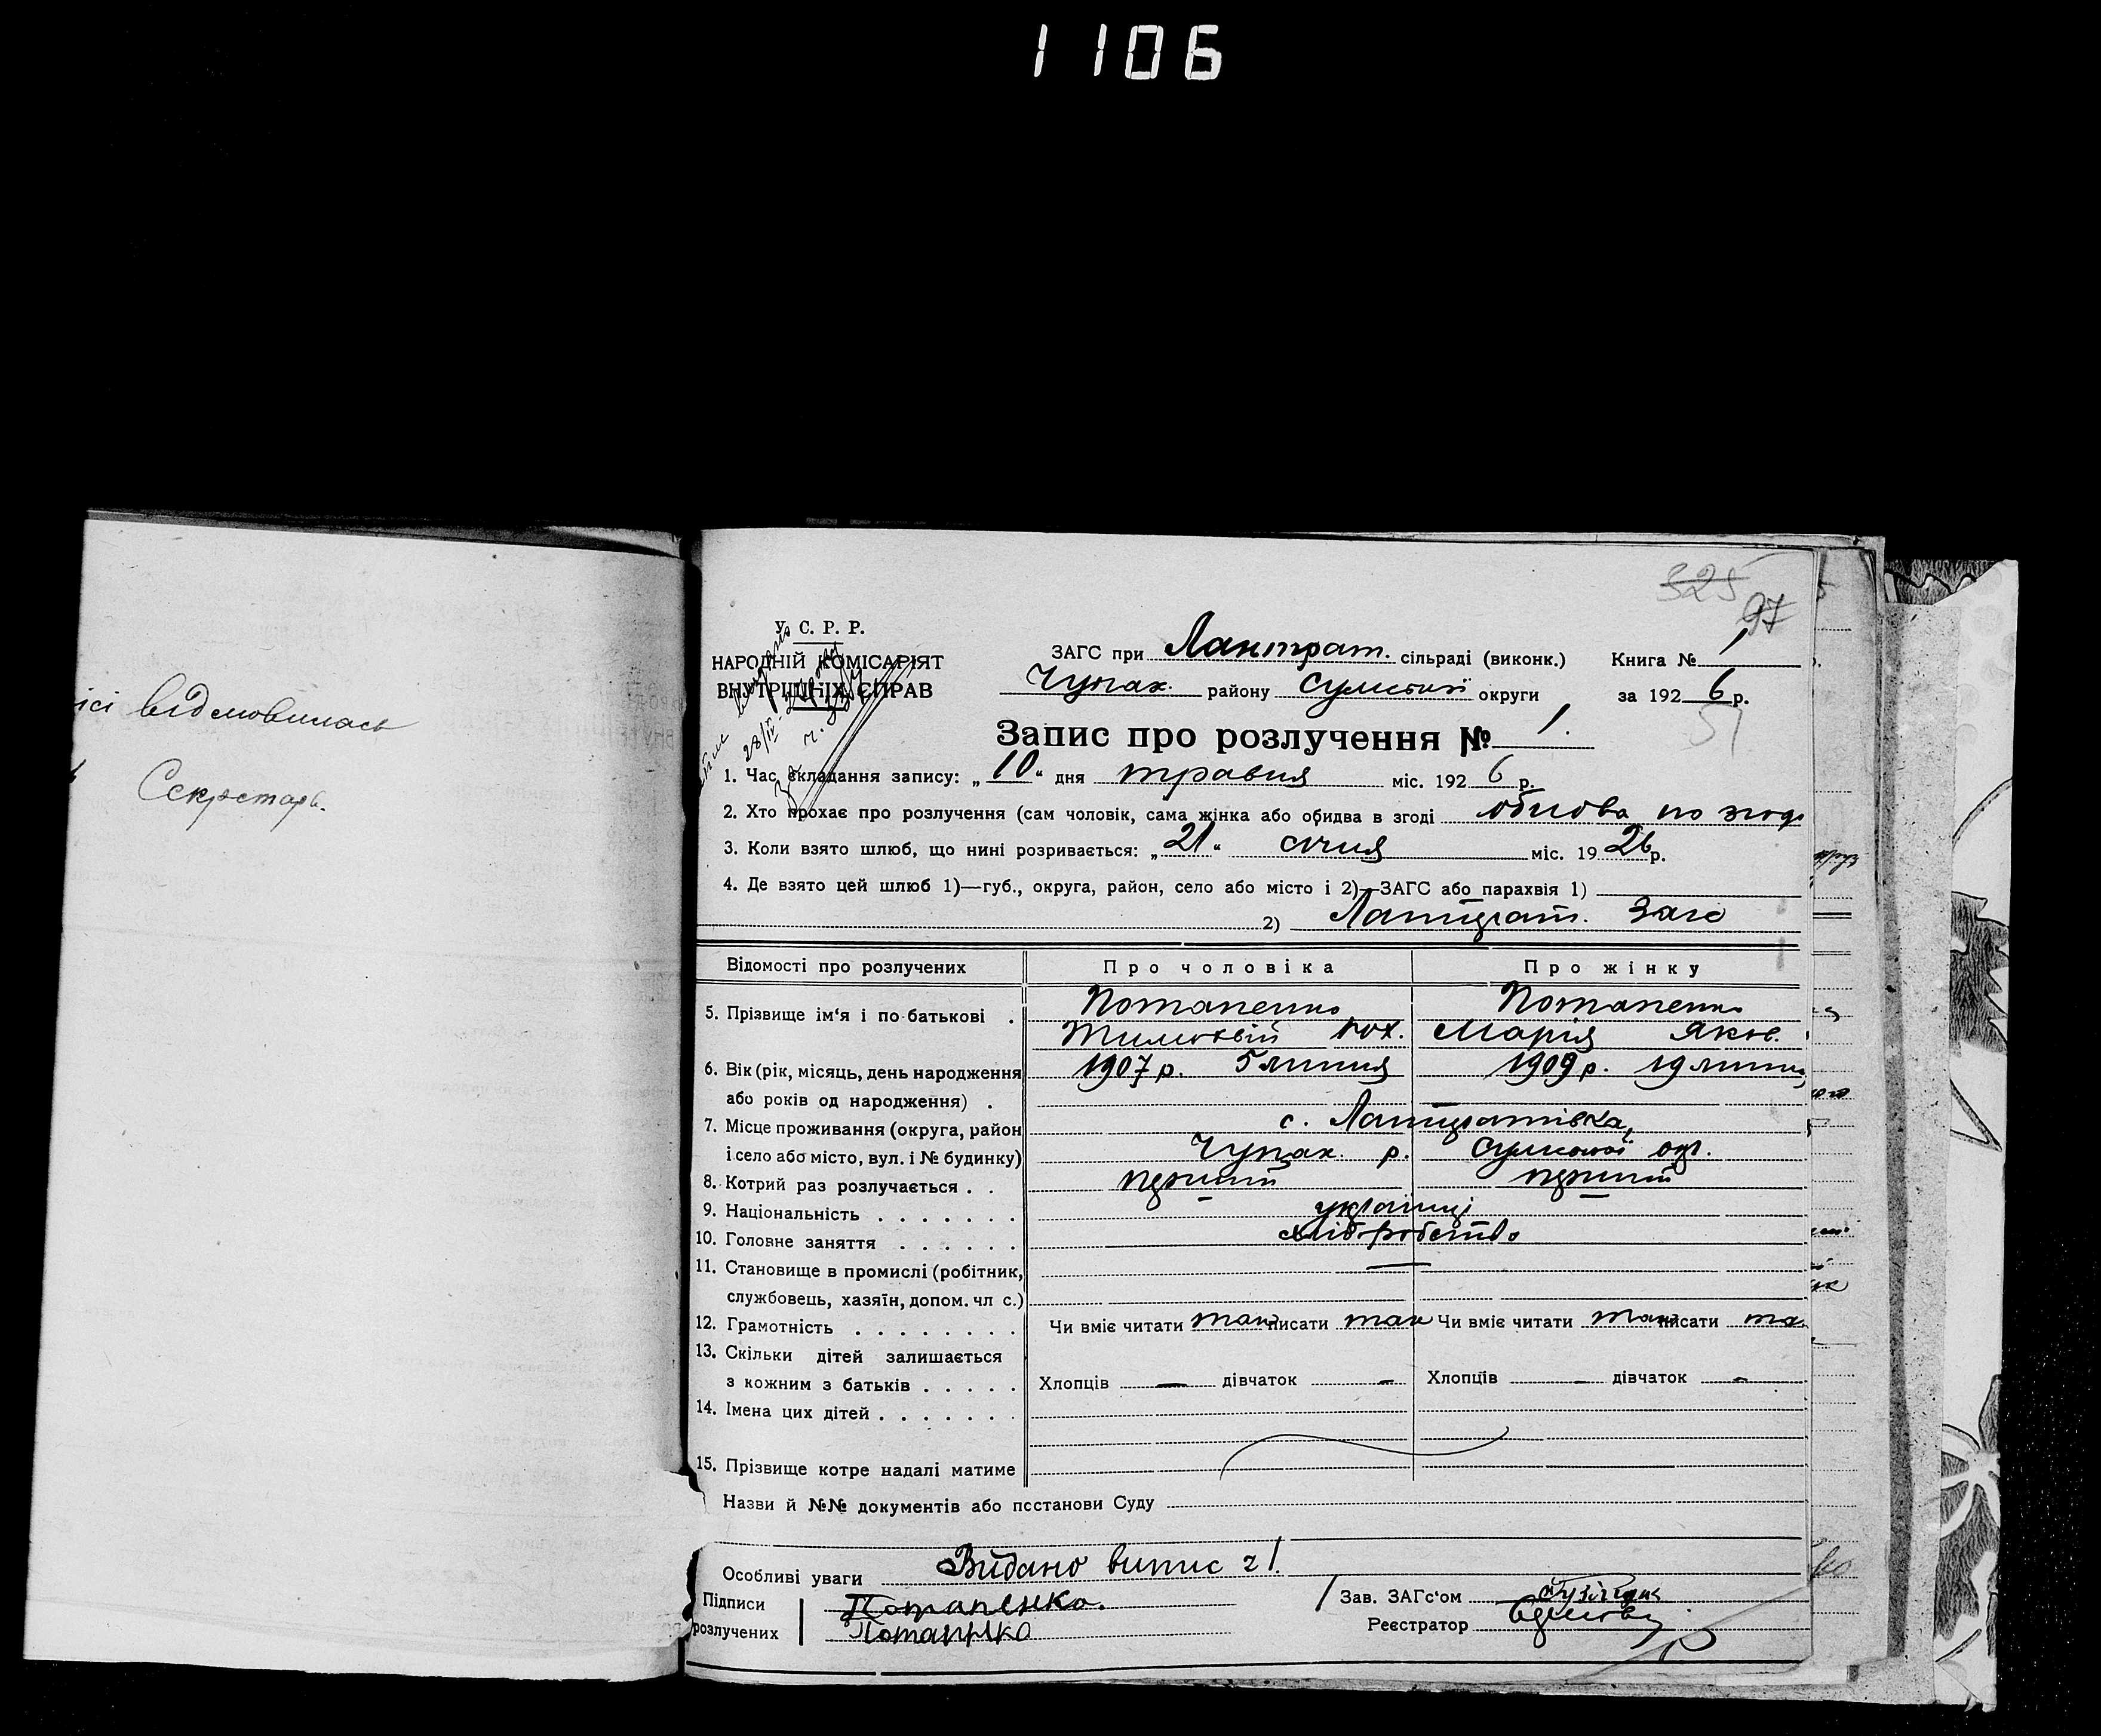 1106
ісі відмовилась
Секретарь.
325
97
У. С. Р. Р.
НАРОДНІЙ КОМІСАРІЯТ
ВНУТРІШНІХ СПРАВ
28/IV
ЗАГС при Лантрат. сільраді (виконк.) Книга № 1
Чупах. району Сумської округи за 1926 р.
51
Запис про розлучення № 1.
1. Час складання запису: „10“ дня травня міс. 1926 р.
2. Хто прохає про розлучення (сам чоловік, сама жінка або обидва в згоді обидва по згоді
3. Коли взято шлюб, що нині розривається: „21“ січня міс. 1926 р.
4. Де взято цей шлюб 1)—губ., округа, район, село або місто і 2)—ЗАГС або парахвія 1)
2) Лантрат. Загс
Відомості про розлучених Про чоловіка Про жінку
5. Прізвище ім‘я і по-батькові . Потапенко Потапенко
Тимохвій Марія Яков.
6. Вік (рік, місяць, день народження 1907 р. 5 липня 1909 р. 19 липня
або років од народження) .
7. Місце проживання (округа, район с. Лантратівка,
і село або місто, вул. і № будинку) Чупах. р. Сумської окр.
8. Котрий раз розлучається . . перший перший
9. Національність . . . . . . . українці
10. Головне заняття . . . . . . хліборобство
11. Становище в промислі (робітник, —
службовець, хазяїн, допом. чл с.)
12. Грамотність . . . . . . . . Чи вміє читати так писати так Чи вміє читати так писати та
13. Скільки дітей залишається
з кожним з батьків . . . . . Хлопців — дівчаток - Хлопців - дівчаток -
14. Імена цих дітей . . . . . . .
15. Прізвище котре надалі матиме
Назви й №№ документів або постанови Суду
Особливі уваги Видано випис ч 1.
Підписи Потапенко. Зав. ЗАГс‘ом
розлучених Потапенко Реєстратор